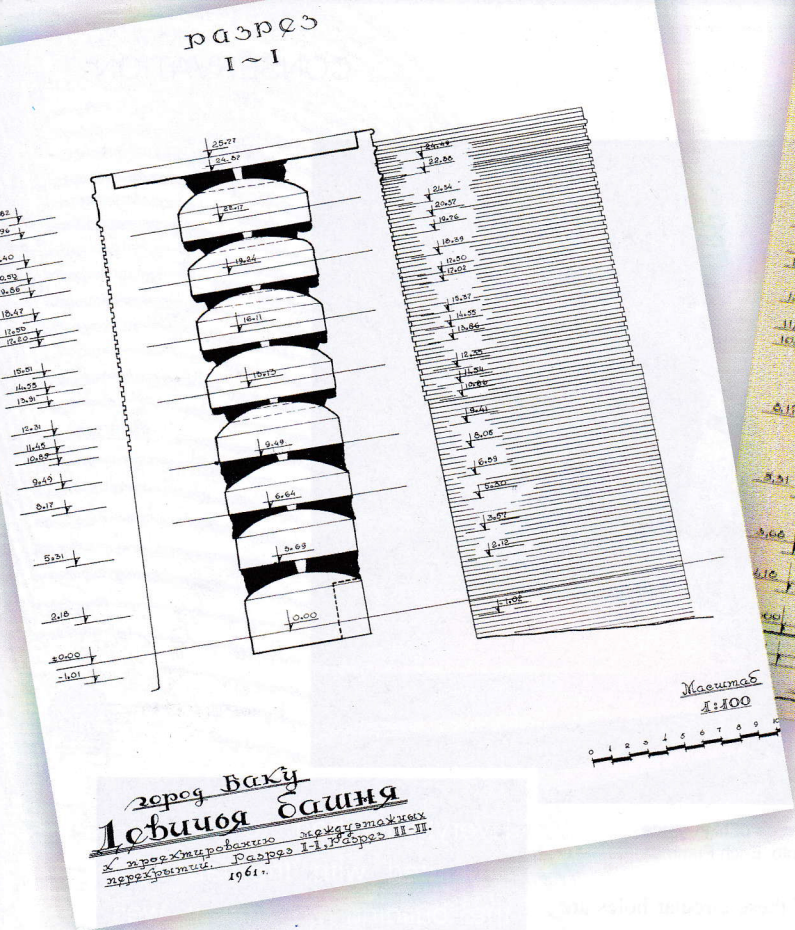 разрез
I~I
25.77
24.87
22.17
19.24
16.11
13.13
9.49
6.64
3.69
0.00
18.47
17.50
17.20
15.51
14.55
13.91
12.31
11.45
10.89
9.49
8.17
5.31
2.18
±0.00
-1.01
22.88
21.54
20.57
19.76
18.39
17.50
17.02
15.37
14.55
13.86
12.35
11.54
10.86
9.41
8.08
6.59
5.30
3.57
2.12
-1.02
Масштаб
1:100
0 1 2 3 4 5 6 7 8 9
город Баку
Девичья башня
К проектированию междуэтажных
перекрытий. Разрез I-I, Разрез II-II.
1961г.